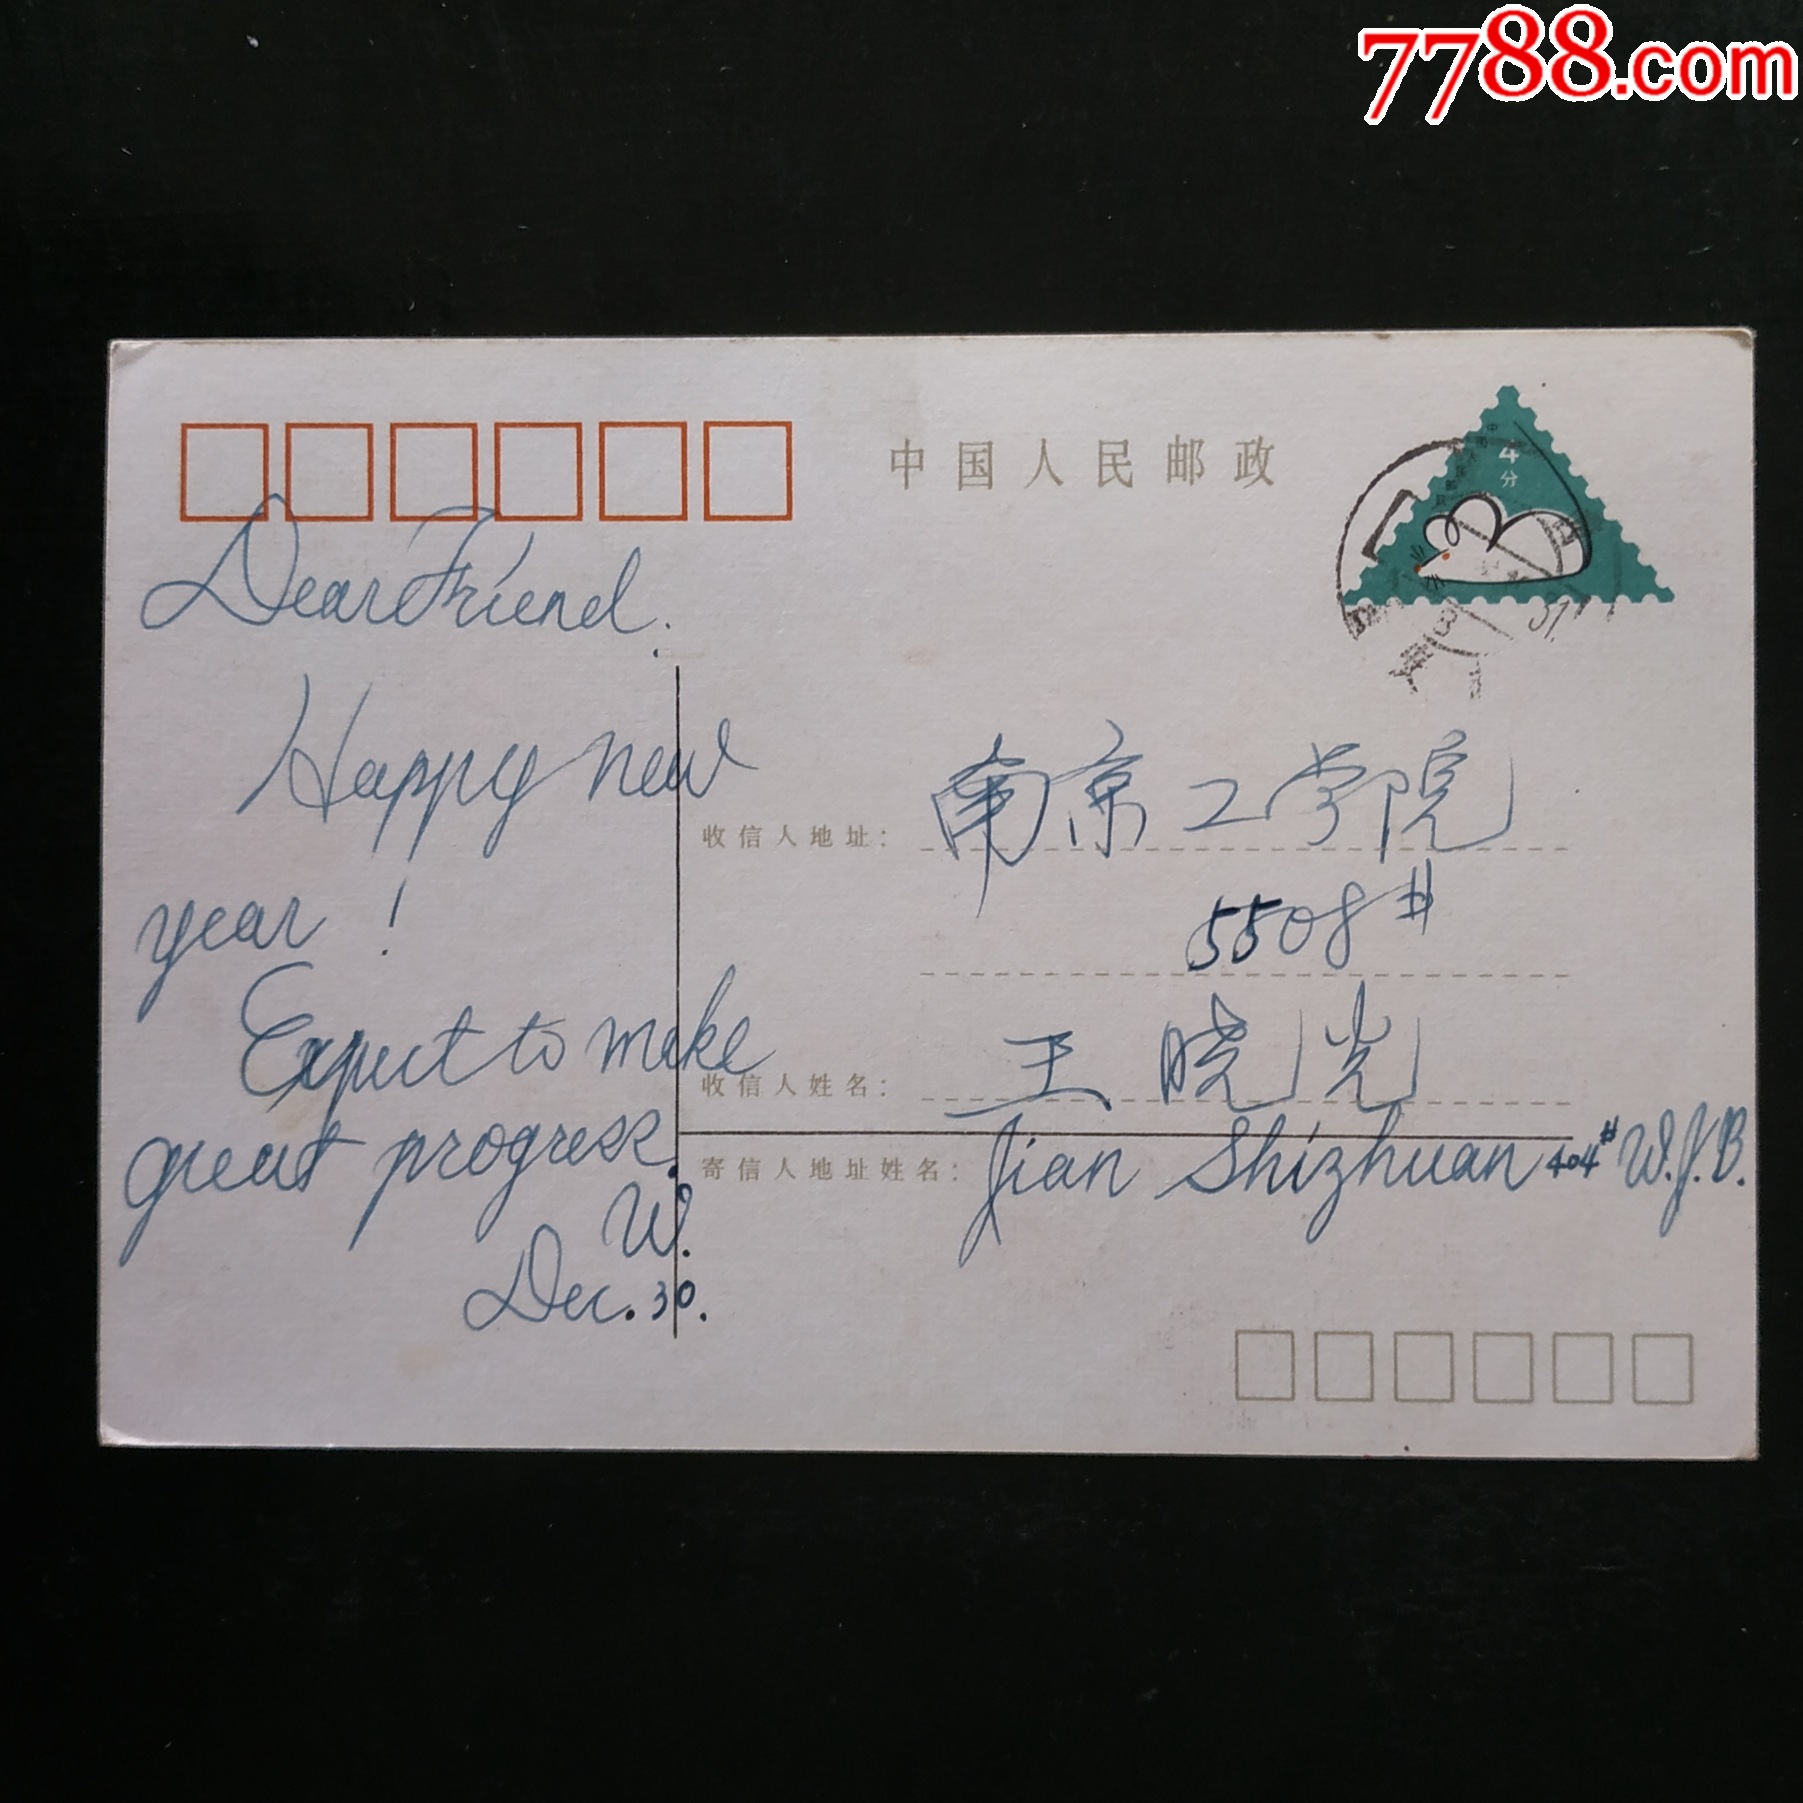 7788.com
中国人民邮政
4
分
Dear Friend.
Happy new
year!
Expect to make
great progress.
W.
Dec. 30.
收信人地址:
南京工学院
5508#
收信人姓名:
王晓光
寄信人地址姓名:
Jian Shizhuan 404# W.J.B.